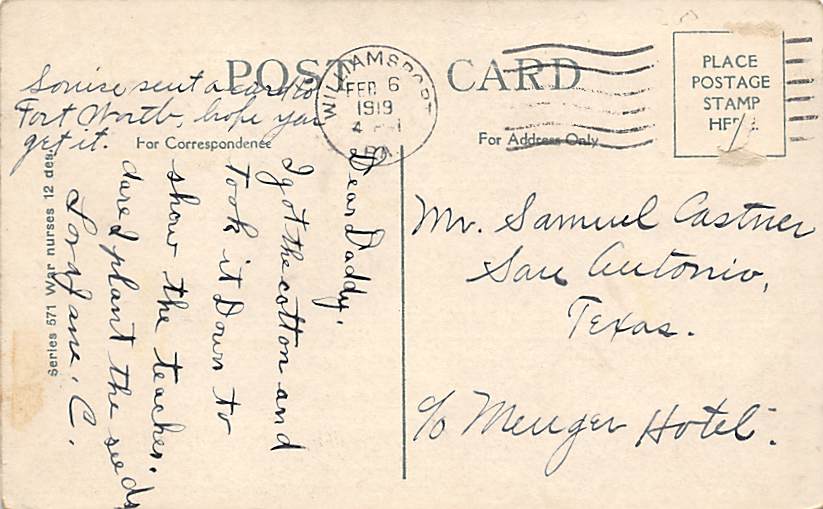 POST CARD
WILLIAMSPORT
FEB 6
1919
4 PM
PA.
PLACE
POSTAGE
STAMP
HERE.
Louise sent a card to
Fort Worth, hope you
get it.
For Correspondence
For Address Only
Dear Daddy,
I got the cotton and
Took it Down to
show the teacher.
dare I plant the seeds
Lora Jane. C.
Series 571 War nurses 12 des.
Mr. Samuel Castner
San Antonio,
Texas.
c/o Menger Hotel.